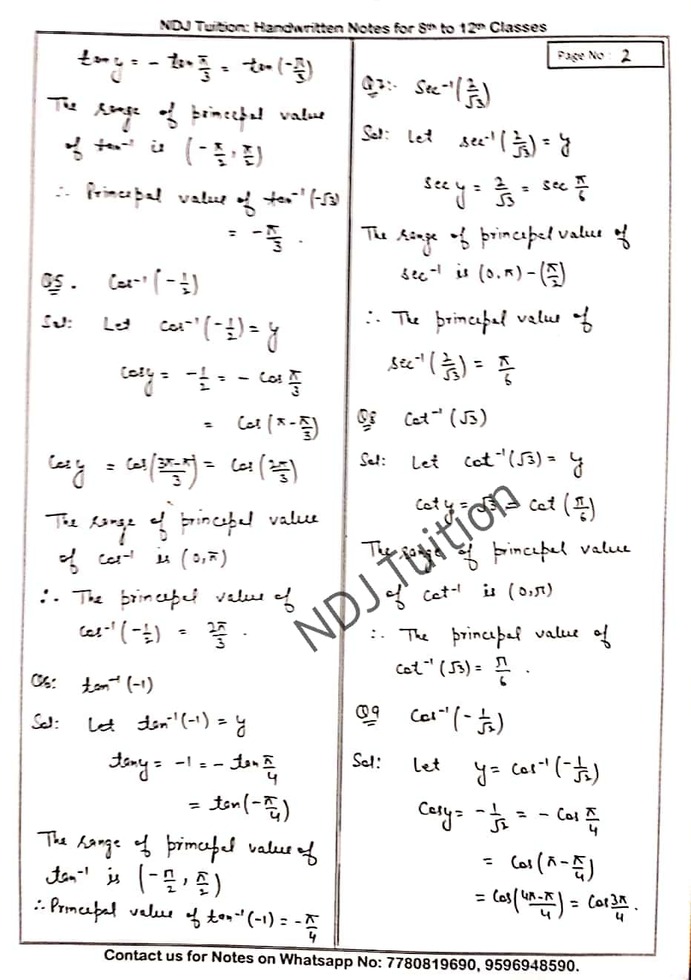 NDJ Tuition: Handwritten Notes for 8th to 12th Classes
Page No : 2
tan y = - tan π/3 = tan(-π/3)
The range of principal value
of tan⁻¹ is (-π/2, π/2)
∴ Principal value of tan⁻¹(-√3)
= -π/3 .
Q5. Cos⁻¹(-1/2)
Sol: Let Cos⁻¹(-1/2) = y
Cosy = -1/2 = - Cos π/3
= Cos(π-π/3)
Cosy = Cos(3π-π/3) = Cos(2π/3)
The range of principal value
of Cos⁻¹ is (0,π)
∴ The principal value of
Cos⁻¹(-1/2) = 2π/3 .
Q6: tan⁻¹(-1)
Sol: Let tan⁻¹(-1) = y
tany = -1 = - tan π/4
= tan(-π/4)
The range of principal value of
tan⁻¹ is (-π/2, π/2)
∴ Principal value of tan⁻¹(-1) = -π/4
Q7:- Sec⁻¹(2/√3)
Sol: Let sec⁻¹(2/√3) = y
sec y = 2/√3 = sec π/6
The range of principal value of
sec⁻¹ is (0,π)-(π/2)
∴ The principal value of
sec⁻¹(2/√3) = π/6
Q8 Cot⁻¹(√3)
Sol: Let cot⁻¹(√3) = y
Cot y = √3 = Cot(π/6)
The range of principal value
of Cot⁻¹ is (0,π)
∴ The principal value of
Cot⁻¹(√3) = π/6 .
Q9 Cos⁻¹(-1/√2)
Sol: Let y = Cos⁻¹(-1/√2)
Cosy = -1/√2 = - Cos π/4
= Cos(π-π/4)
= Cos(4π-π/4) = Cos 3π/4 .
NDJ Tuition
Contact us for Notes on Whatsapp No: 7780819690, 9596948590.